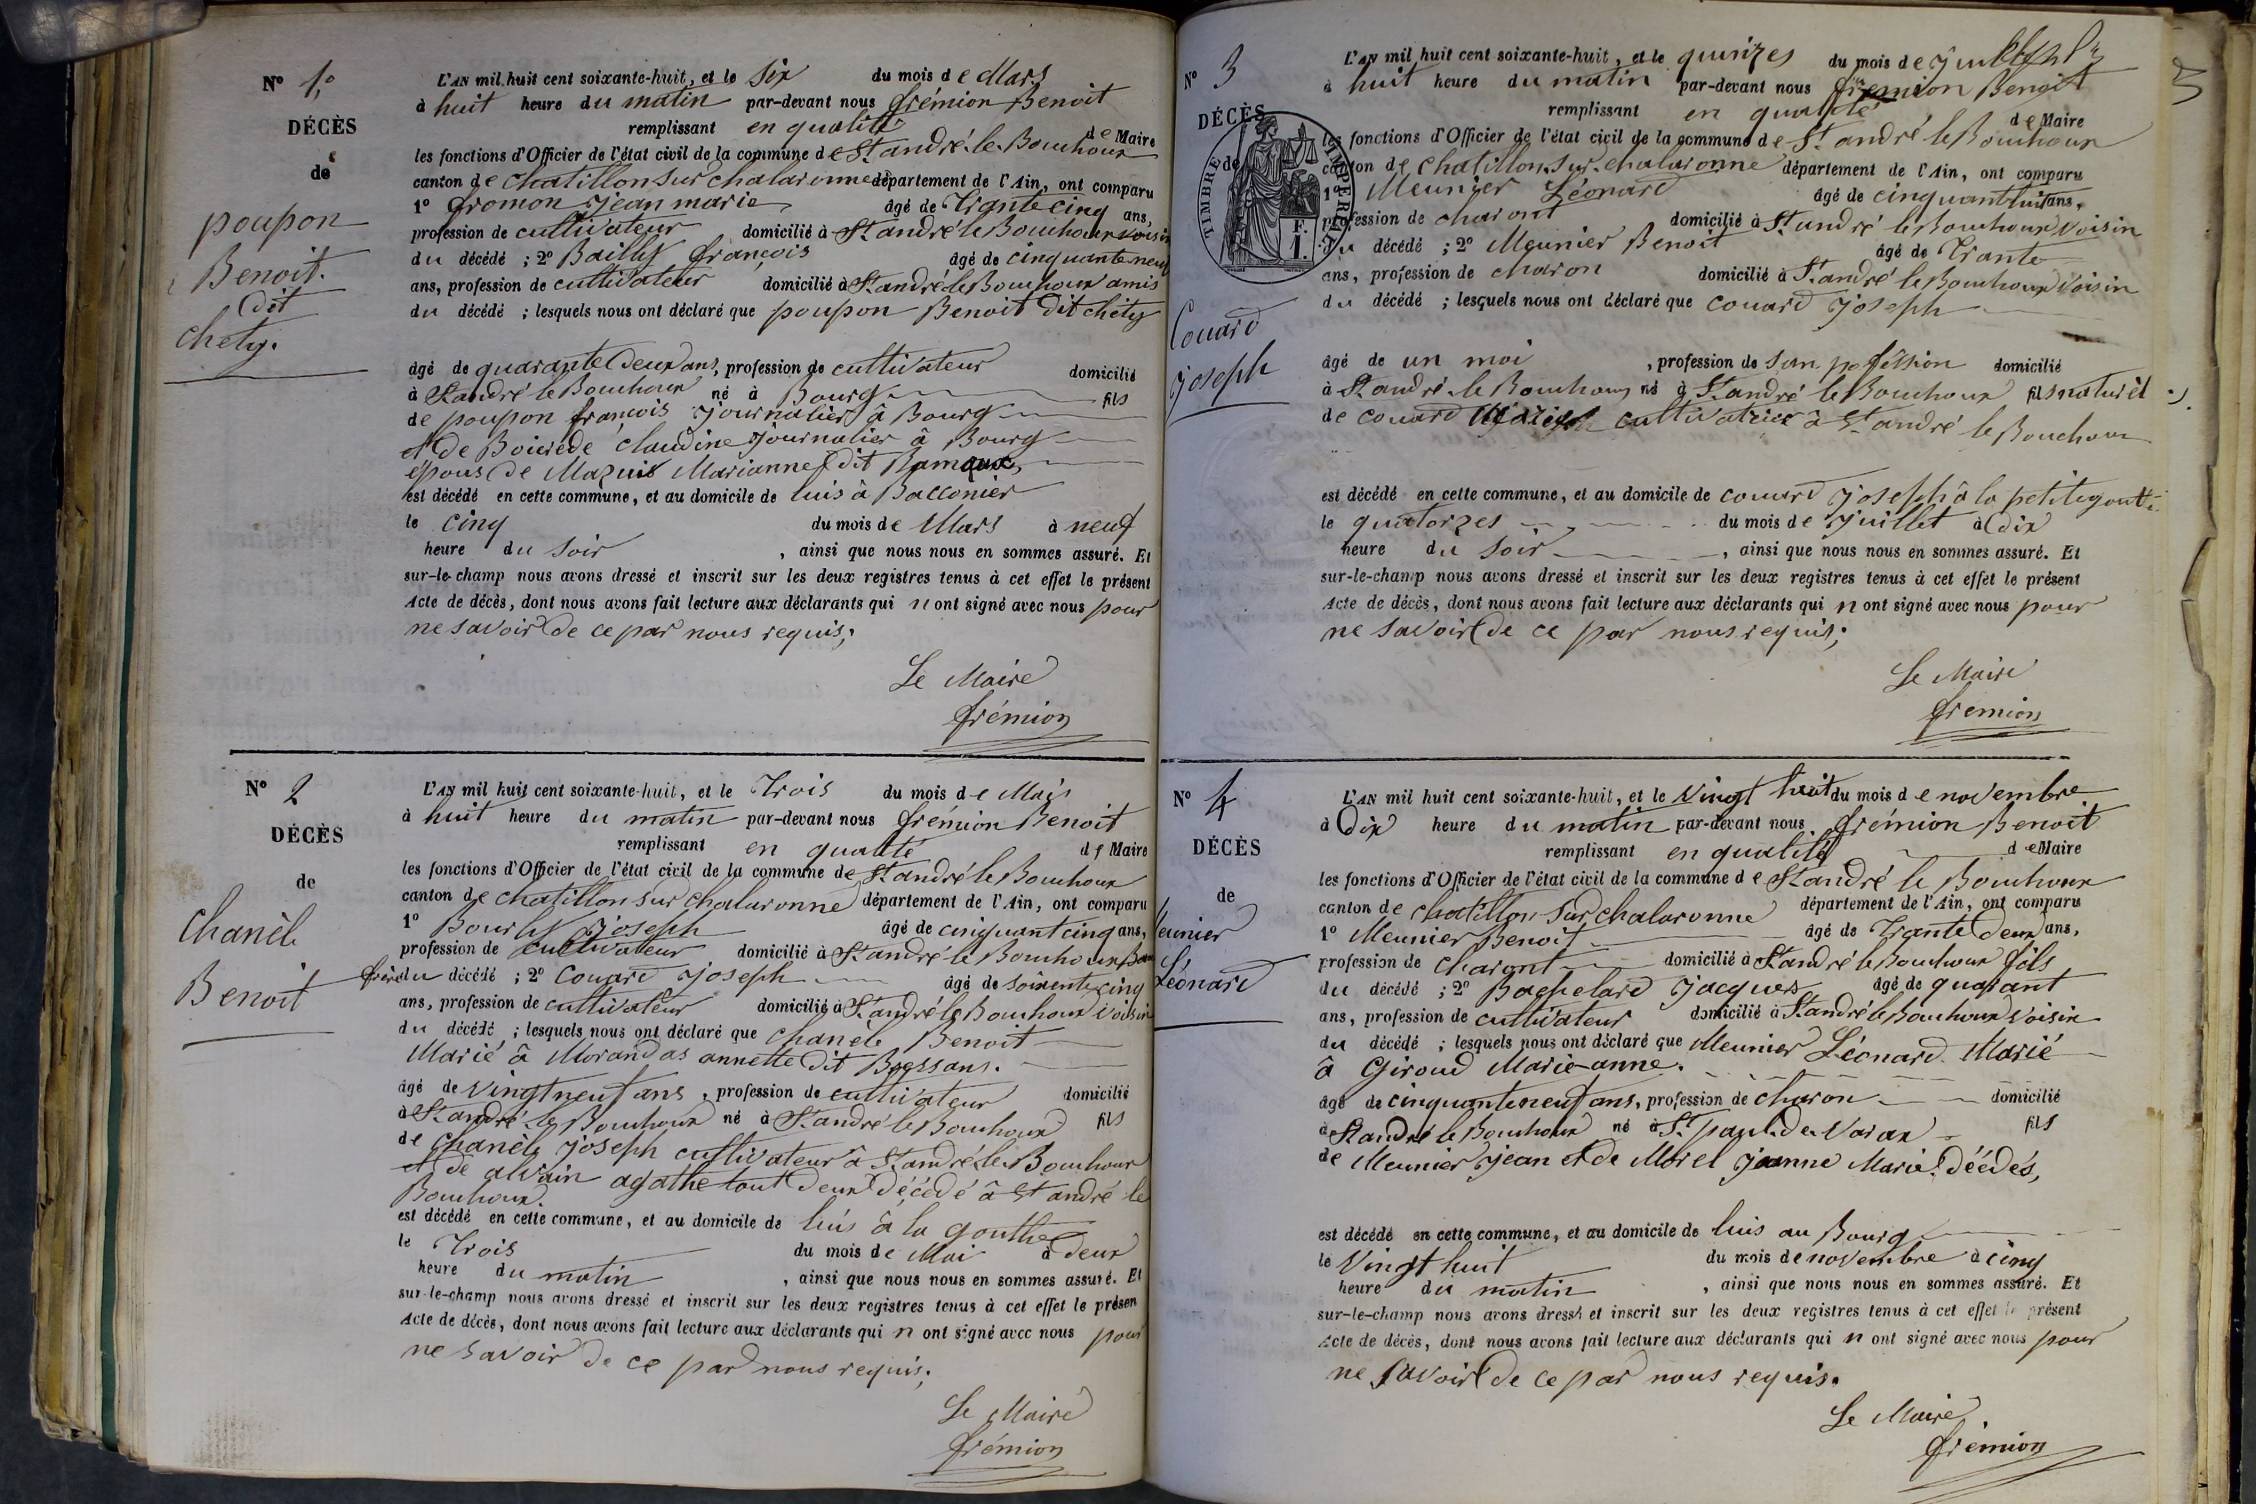 N° 1.°
DÉCÈS
de
poupon
Benoit.
dit
chety.
L'AN mil huit cent soixante-huit, et le Six du mois de Mars
à huit heure du matin par-devant nous frémion Benoit
remplissant en qualité de Maire
les fonctions d'Officier de l'état civil de la commune de St andré le Bouchoux
canton de chatillon sur chalaronne département de l'Ain, ont comparu
1° fromon jean marie âgé de Trante cinq ans,
profession de cultivateur domicilié à St andré le Bouchoux voisin
du décédé ; 2° Bailly françois âgé de cinquante neuf
ans, profession de cultivateur domicilié à St andré le Bouchoux amis
du décédé ; lesquels nous ont déclaré que poupon Benoit dit chety
âgé de quarante deux ans, profession de cultivateur domicilié
à St andré le Bouchoux né à Bourg fils
de poupon françois journalier à Bourg
et de claudine journalier à Bourg
épous de Mazuis Marianne dit
est décédé en cette commune, et au domicile de luis à Bacconier
le cinq du mois de Mars à neuf
heure du soir , ainsi que nous nous en sommes assuré. Et
sur-le-champ nous avons dressé et inscrit sur les deux registres tenus à cet effet le présent
Acte de décès, dont nous avons fait lecture aux déclarants qui n ont signé avec nous pour
ne savoir de ce par nous requis;
Le Maire
frémion
N° 2
DÉCÈS
de
chanèl
Benoit
L'AN mil huit cent soixante-huit, et le Trois du mois de Mai
à huit heure du matin par-devant nous frémion Benoit
remplissant en qualité de Maire
les fonctions d'Officier de l'état civil de la commune de St andré le Bouchoux
canton de chatillon sur chalaronne département de l'Ain, ont comparu
1° Bourly Joseph âgé de cinquant cinq ans,
profession de cultivateur domicilié à St andré le Bouchoux Beau
frère du décédé ; 2° couard joseph âgé de soixente cinq
ans, profession de cultivateur domicilié à St andré le Bouchoux voisin
du décédé ; lesquels nous ont déclaré que chanèl Benoit
Marié â Morandas annette dit Bressans.
âgé de vingt neuf ans , profession de cultivateur domicilié
à St andré le Bouchoux né à St andré le Bouchoux fils
de chanèl joseph cultivateur â St andré le Bouchoux
et de alvain agathe tout deux décédé â St andré le
Bouchoux.
est décédé en cette commune, et au domicile de luis â la goutte
le Trois du mois de Mai à deux
heure du matin , ainsi que nous nous en sommes assuré. Et
sur-le-champ nous avons dressé et inscrit sur les deux registres tenus à cet effet le présen
Acte de décès, dont nous avons fait lecture aux déclarants qui n ont signé avec nous pour
ne savoir de ce par nous requis;
Le Maire
frémion
3
N° 3
DÉCÈS
de
TIMBRE IMPÉRIAL
Couard
joseph
L'AN mil huit cent soixante-huit, et le quinzes du mois de juillet
à huit heure du matin par-devant nous fremion Benoit
remplissant en qualité de Maire
les fonctions d'Officier de l'état civil de la commune de St andré le Bouchoux
canton de chatillon sur chalaronne département de l'Ain, ont comparu
1° Meunier Léonard âgé de cinquant huit ans,
profession de charont domicilié à St andré le Bouchoux voisin
du décédé ; 2° Meunier Benoit âgé de Trante
ans, profession de charon domicilié à St andré le Bouchoux voisin
du décédé ; lesquels nous ont déclaré que couard joseph
âgé de un moi , profession de san proféssion domicilié
à St andré le Bouchoux né à St andré le Bouchoux fils naturèl
de couard cultivatrice à St andré le Bouchoux
est décédé en cette commune, et au domicile de couard joseph â la petite goutte
le quatorzes du mois de juillet à dix
heure du soir , ainsi que nous nous en sommes assuré. Et
sur-le-champ nous avons dressé et inscrit sur les deux registres tenus à cet effet le présent
Acte de décès, dont nous avons fait lecture aux déclarants qui n ont signé avec nous pour
ne savoir de ce par nous requis;
Le Maire
fremion
N° 4
DÉCÈS
de
Meunier
Léonard
L'AN mil huit cent soixante-huit, et le vingt huit du mois de novembre
à dix heure du matin par-devant nous frémion Benoit
remplissant en qualité de Maire
les fonctions d'Officier de l'état civil de la commune de St andré le Bouchoux
canton de chatillon sur chalaronne département de l'Ain, ont comparu
1° Meunier Benoit âgé de Trante deux ans,
profession de charont domicilié à St andré le Bouchoux fils
du décédé ; 2° Bachelard jacques âgé de quarant
ans, profession de cultivateur domicilié à St andré le Bouchoux voisin
du décédé ; lesquels nous ont déclaré que Meunier Léonard Marié
â Giroud Marie-anne.
âgé de cinquante neuf ans, profession de charon domicilié
à St andré le Bouchoux né à St paul de Varax fils
de Meunier jean et de Morel jeanne Marie déédés,
est décédé en cette commune, et au domicile de luis au Bourg
le vingt huit du mois de novembre à cinq
heure du matin , ainsi que nous nous en sommes assuré. Et
sur-le-champ nous avons dressé et inscrit sur les deux registres tenus à cet effet le présent
Acte de décès, dont nous avons fait lecture aux déclarants qui n ont signé avec nous pour
ne savoir de ce par nous requis.
Le Maire
frémion